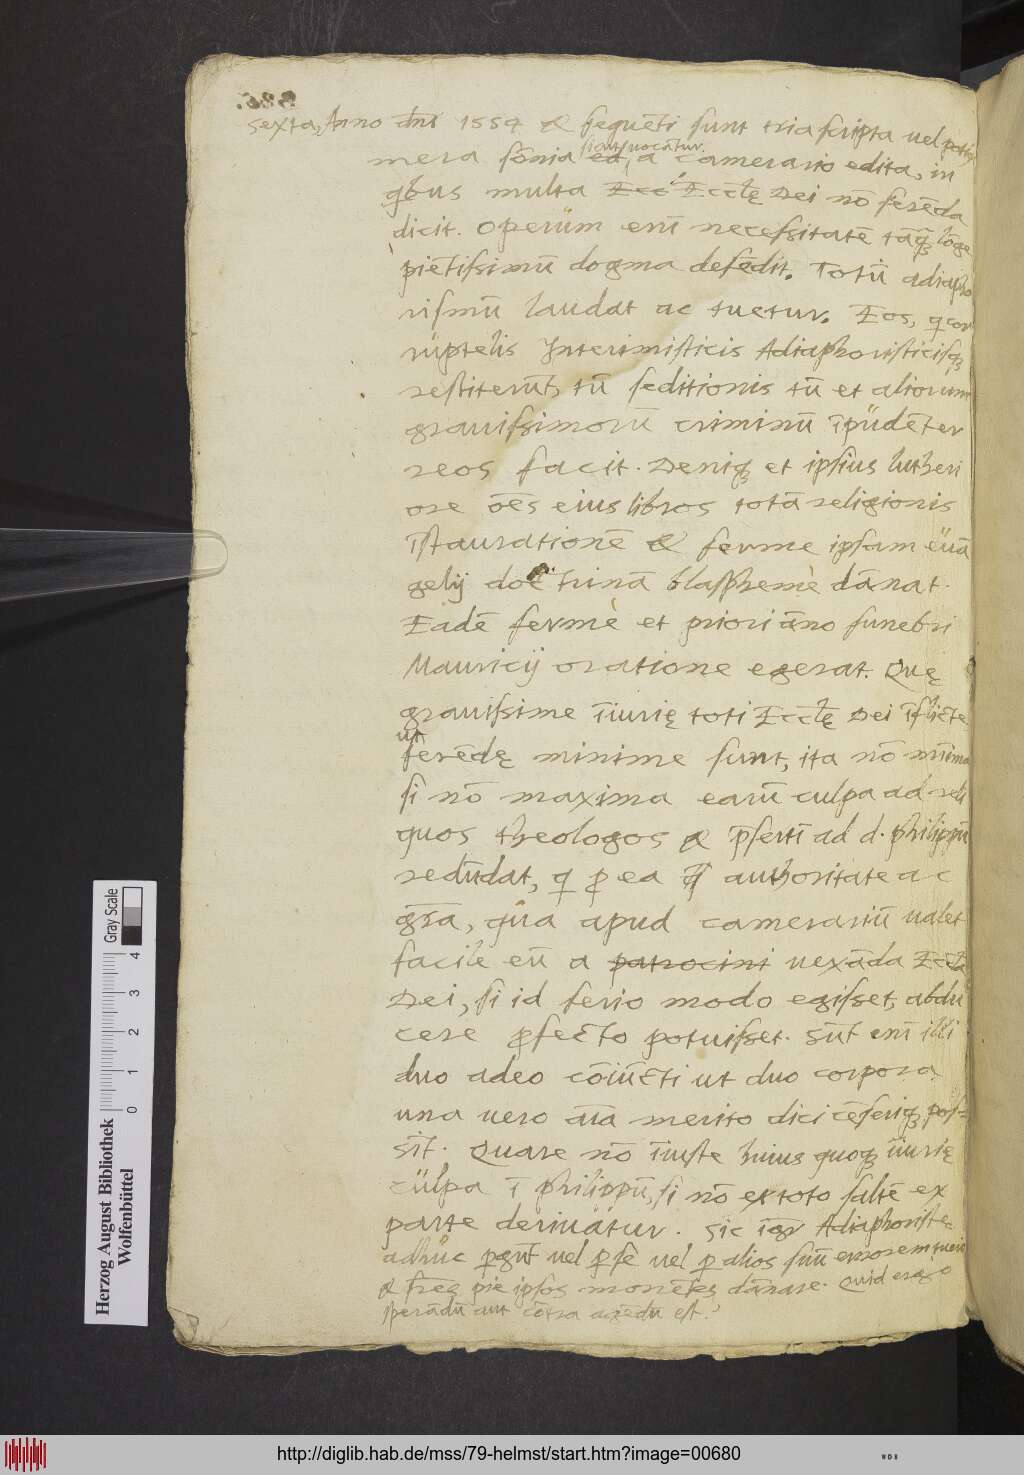 sexta, Anno dnī 1554 & sequēti sunt tria scripta uel
sicut uocātur
mera sōnia ea, a camerario edita, in
qbus multa Ecc Eccłę Dei nō ferēda
dicit. Operum enī necessitatē tāq̄ lōge
piētissimū dogma defēdit. Totū adiapho
rismū laudat ac tuetur. Eos, q cor
ruptelis Interimisticis Adiaphoristicisq;
restiterūt, tū seditionis tū et aliorum
grauissimorū criminū īpudēter
reos facit. Deniq; et ipsius lutheri
ore oēs eius libros totā religionis
īstaurationē & ferme ipsam euā
gelij doctrinā blasphemè dānat.
Eadē fermè et priori āno funebri
Mauricij oratione egerat. Quę
grauissime īiurię toti Eccłę Dei īflictę
ut
ferēdę minime sunt, ita nō minima
si nō maxima earū culpa ad reli
quos theologos & p̄sertī ad d. philippū
redūdat, q p ea authoritate ac
gr̄a, qua apud camerariū ualet
facile eū a patrocini uexāda Eccła
Dei, si id serio modo egisset, abdu
cere pfecto potuisset. Sūt enī illi
duo adeo cōiūcti ut duo corpora
una uero aīa merito dici cēseriq; pos-
sīt. Quare nō īiuste huius quoq; īiurię
culpa ī philippū, si nō ex toto saltē ex
parte deriuatur. Sic igr Adiaphoristę
adhuc pgūt uel p se uel p alios suū errorem tueri
& fr̄es pie ipsos monētes dānare. Quid ergo
sperādū aut cōtra agēdū est?
Herzog August Bibliothek
Wolfenbüttel
Gray Scale
0 1 2 3 4
http://diglib.hab.de/mss/79-helmst/start.htm?image=00680